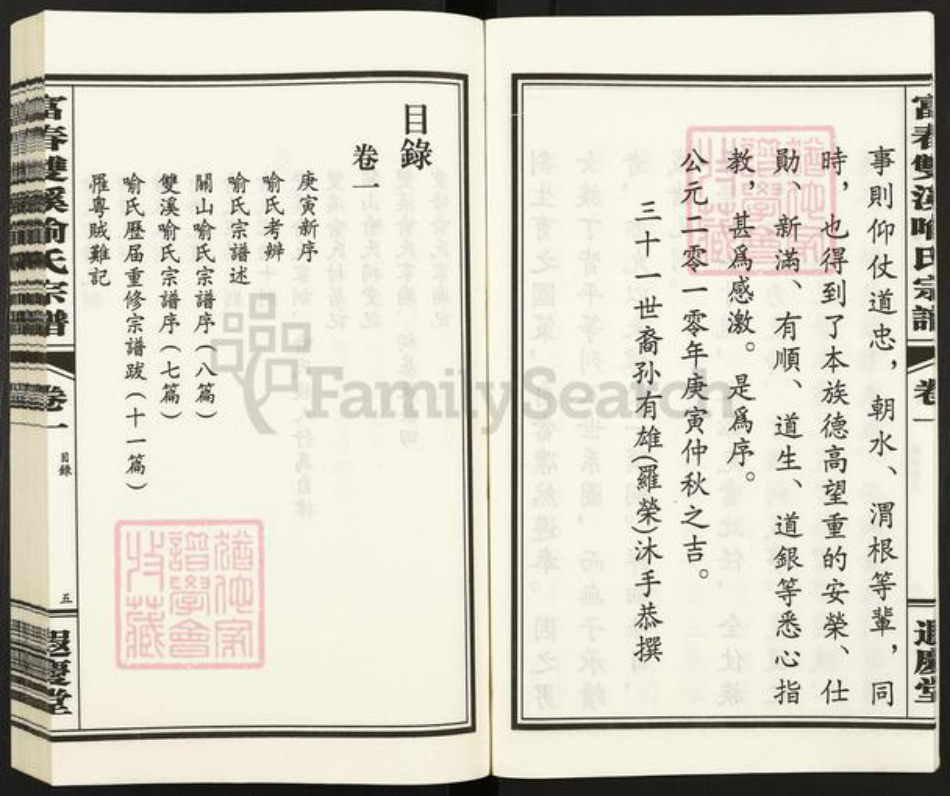 富春雙溪喻氏宗譜
卷一
遐慶堂
事則仰仗道忠，朝水、渭根等輩，同
時，也得到了本族德高望重的安榮、仕
勛、新滿、有順、道生、道銀等悉心指
教，甚爲感激。是爲序。
公元二零一零年庚寅仲秋之吉。
三十一世裔孫有雄(羅榮)沐手恭撰
目錄
卷一
庚寅新序
喻氏考辨
喻氏宗譜述
關山喻氏宗譜序(八篇)
雙溪喻氏宗譜序(七篇)
喻氏歷届重修宗譜跋(十一篇)
罹粵賊難記
富春雙溪喻氏宗譜
卷一
目錄
五
遐慶堂
FamilySearch